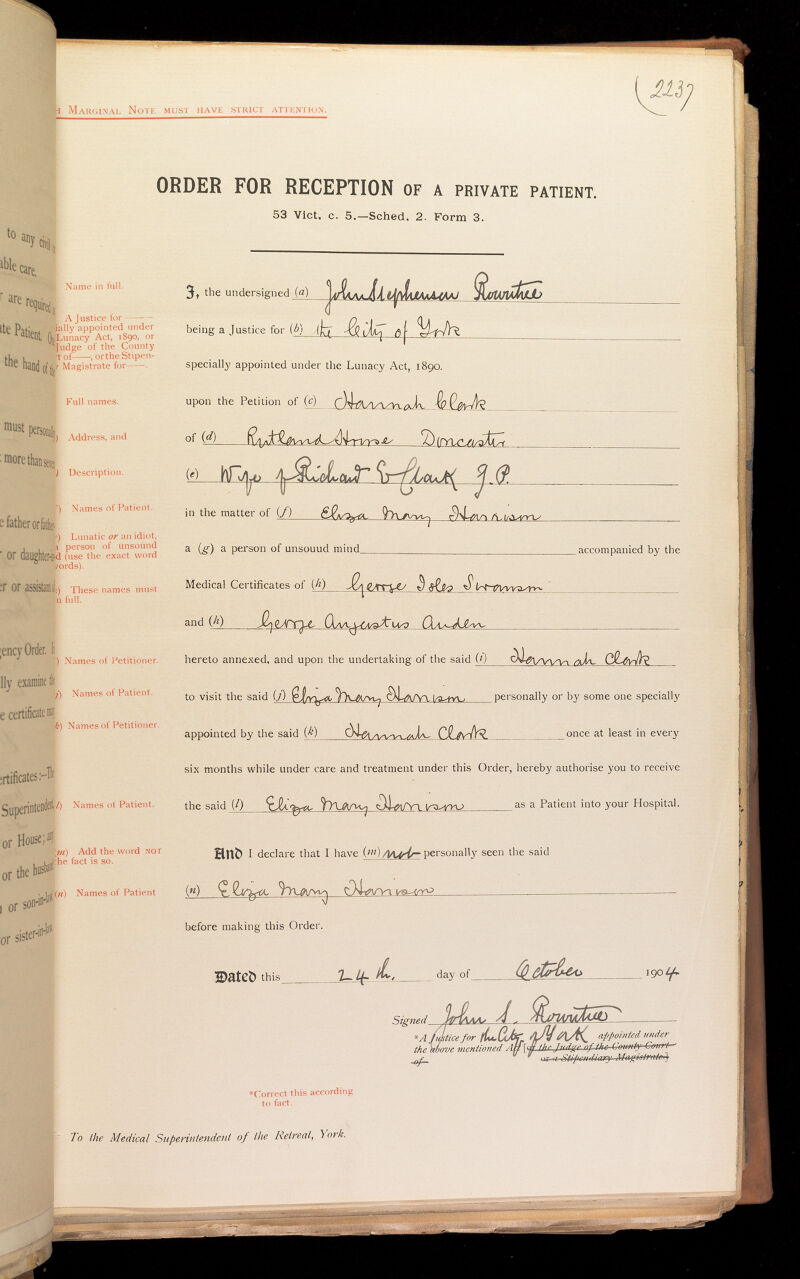 2237
MARGINAL NOTE MUST HAVE STRICT ATTENTION.
ORDER FOR RECEPTION OF A PRIVATE PATIENT.
53 Vict. c. 5.—Sched. 2. Form 3.
to any civil
able care.
are required
ate Patient,
the hand of
must personally
more than seven
father or father
or daughter
er or assistant
ency Order.
lly examine the
e certificate
ertificates:—The
Superintendent
or House;
or the husband
or son-in-law
or sister-in-law
Name in full.
I, the undersigned (a) John Stephenson Rowntree
A Justice for ——
ially appointed under
Lunacy Act, 1890, or
Judge of the County
t of ——, or the Stipen-
Magistrate for ——.
being a Justice for (b) the City of York
specially appointed under the Lunacy Act, 1890.
Full names.
upon the Petition of (c) Hannah Clark
) Address, and
of (d) Rutland House Doncaster
) Description.
(e) Wife of Richard E Clark J.P.
) Names of Patient.
in the matter of (f) Eliza Mary Harrison
) Lunatic or an idiot,
a person of unsound
d (use the exact word
words).
a (g) a person of unsouud mind accompanied by the
) These names must
n full.
Medical Certificates of (h) George Isles Swanson
and (h) George Augustus Auden
) Names of Petitioner.
hereto annexed, and upon the undertaking of the said (i) Hannah Clark
j) Names of Patient.
to visit the said (j) Eliza Mary Harrison personally or by some one specially
k) Names of Petitioner.
appointed by the said (k) Hannah Clark once at least in every
six months while under care and treatment under this Order, hereby authorise you to receive
l) Names of Patient.
the said (l) Eliza Mary Harrison as a Patient into your Hospital.
m) Add the word NOT
he fact is so.
And I declare that I have (m) not personally seen the said
(n) Names of Patient
(n) Eliza Mary Harrison
before making this Order.
Dated this 24th. day of October 1904
Signed John S. Rowntree
*A Justice for the City of York appointed under
the above mentioned Act [or the Judge of the County Court
of or a Stipendiary Magistrate.]
*Correct this according
to fact.
To the Medical Superintendent of the Retreat, York.